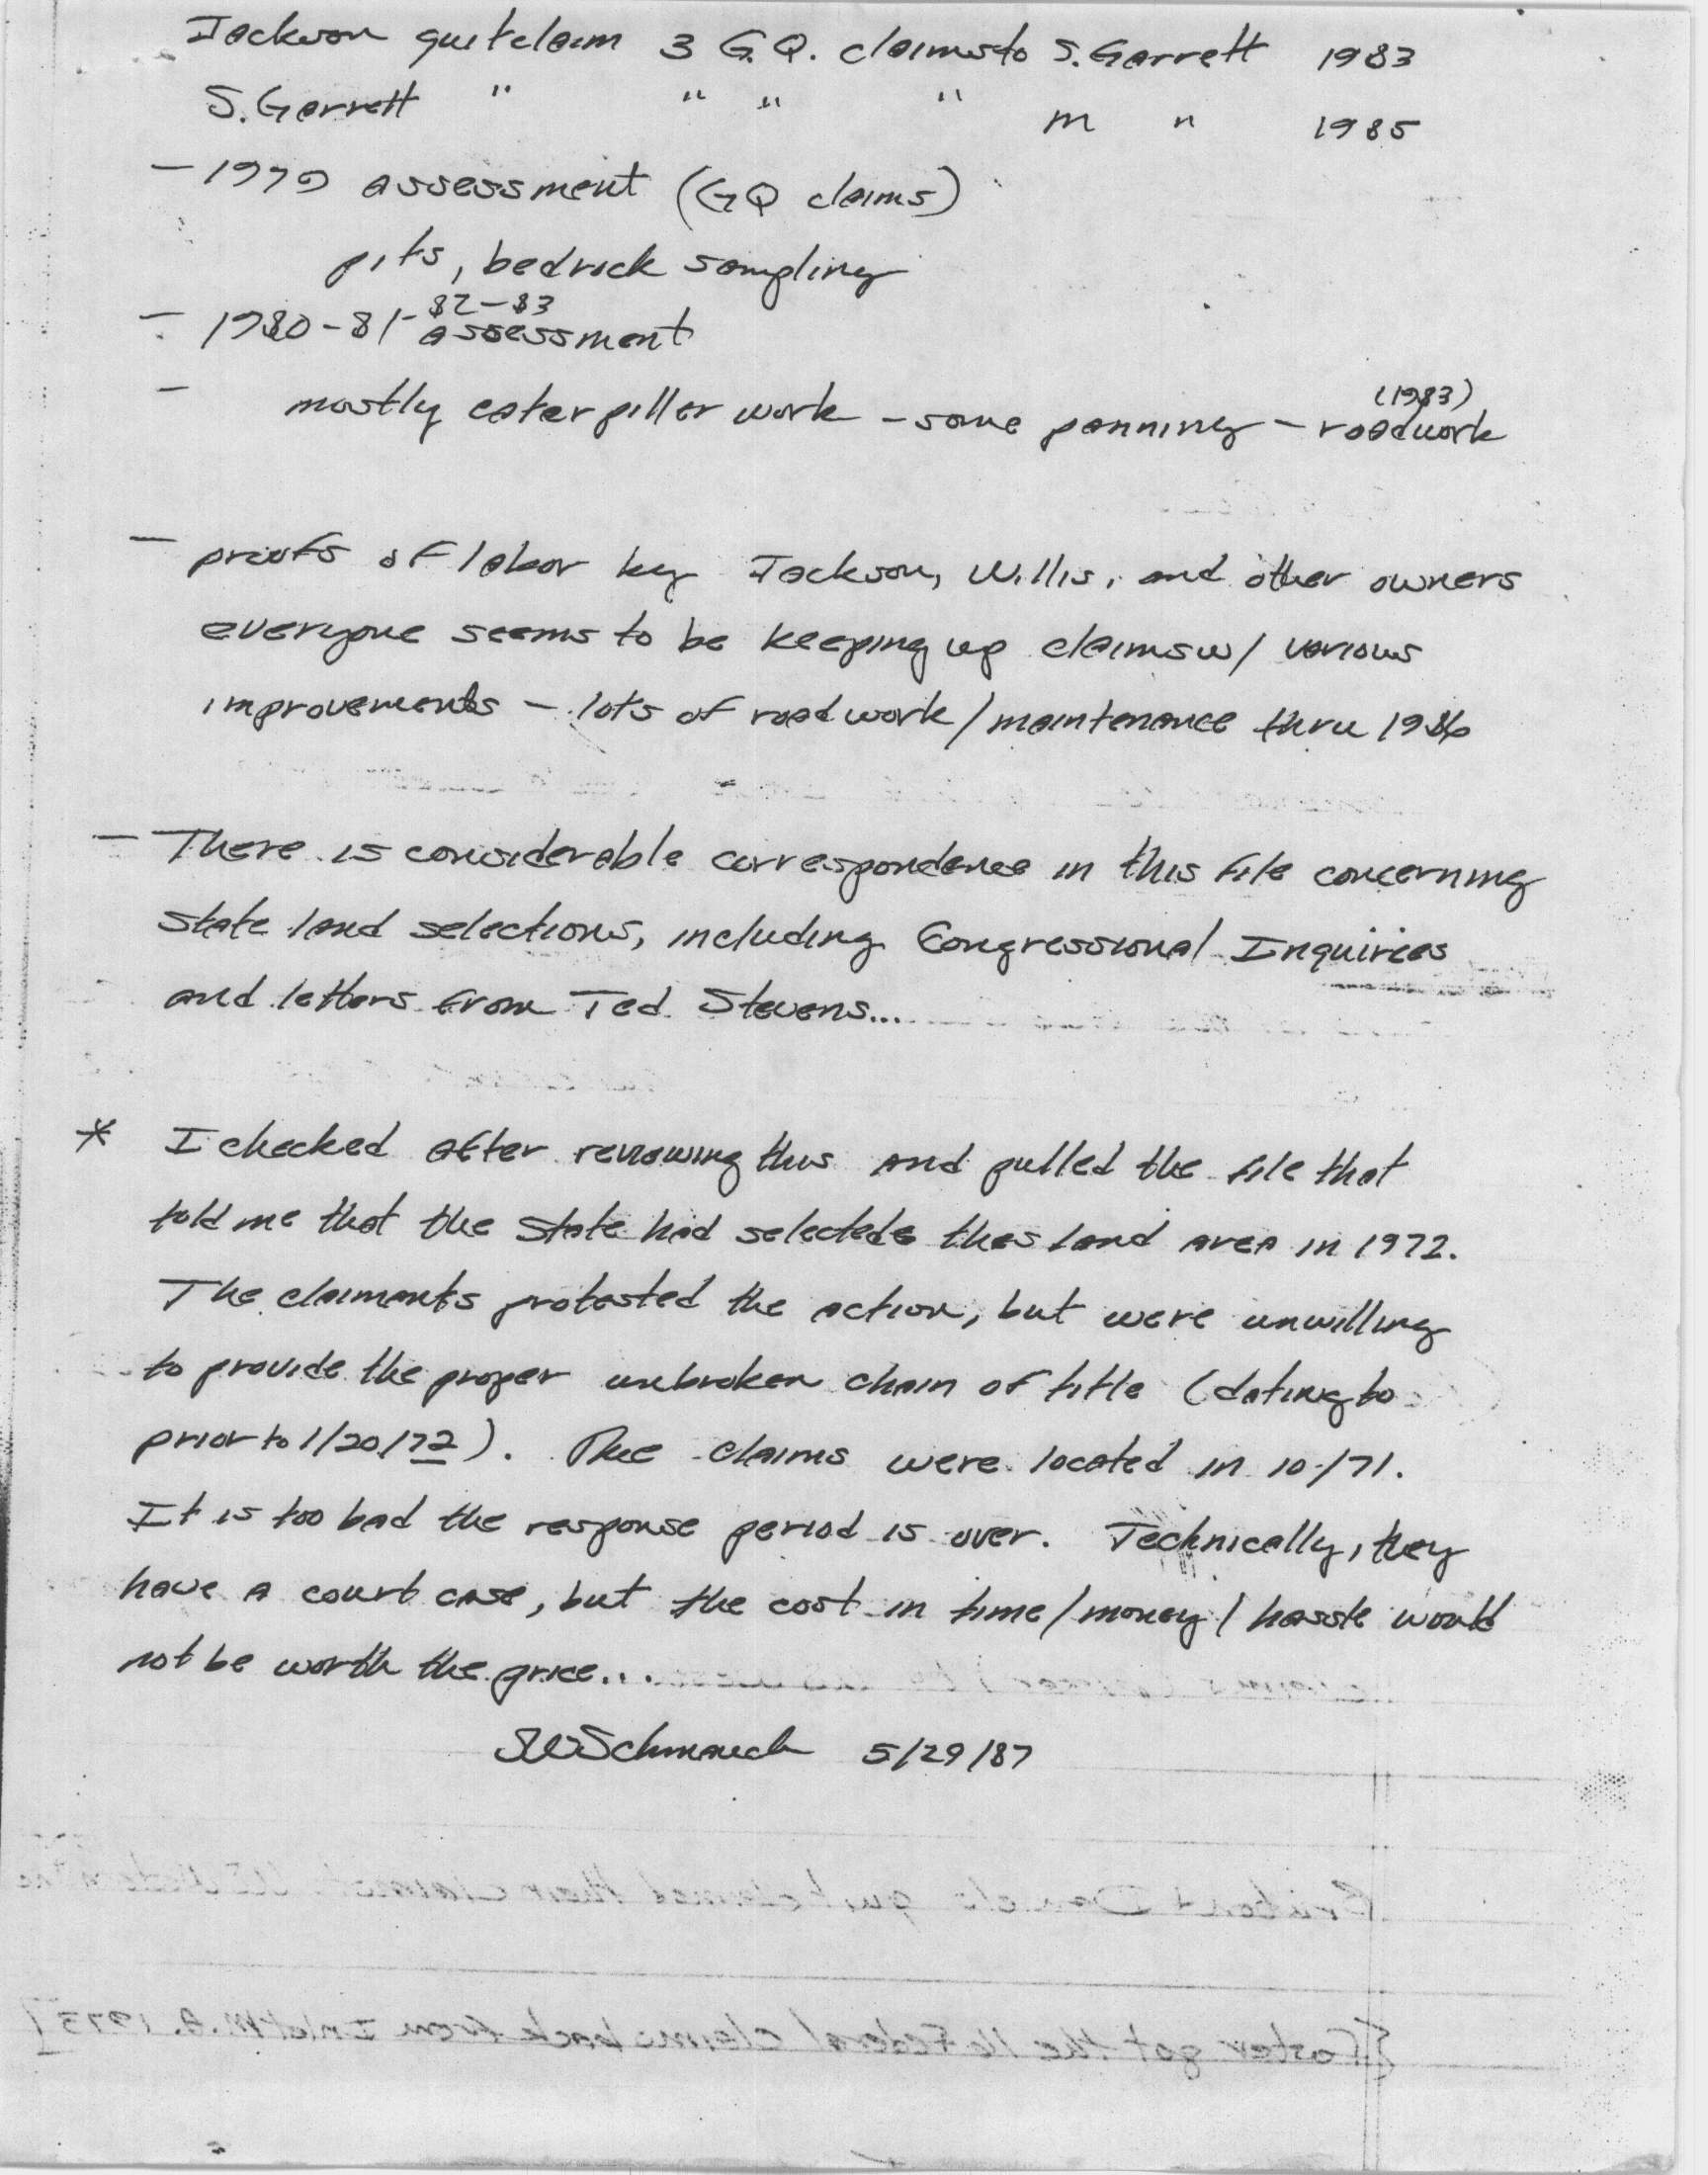 Jackson quitclaim 3 G.Q. claims to S. Garrett 1983
S. Garrett " " " " M " 1985
— 1979 assessment (GQ claims)
pits, bedrock sampling
— 1980-81-82-83 assessment
— mostly caterpiller work – some panning – roadwork (1983)
— proofs of labor by Jackson, Willis, and other owners
everyone seems to be keeping up claims w/ various
improvements – lots of roadwork/maintenance thru 1986
— There is considerable correspondence in this file concerning
State land selections, including Congressional Inquiries
and letters from Ted Stevens...
* I checked after reviewing this and pulled the file that
told me that the State had selected this land area in 1972.
The claimants protested the action, but were unwilling
to provide the proper unbroken chain of title (dating to
prior to 1/20/72). The claims were located in 10/71.
It is too bad the response period is over. Technically, they
have a court case, but the cost in time/money/hassle would
not be worth the price...
SWSchmauch 5/29/87
quitclaimed their claims
{Foster got the 16 Federal claims back from Inlet M.A. 1973]